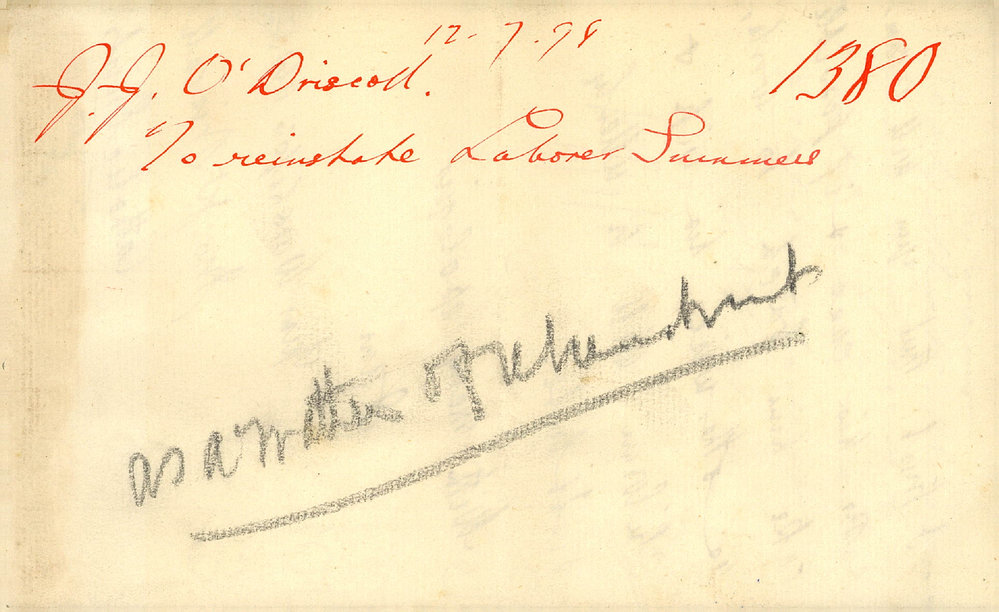 12.7.98
J.J. O'Driscoll. 1380
To reinstate Laborer Summers
as a matter of